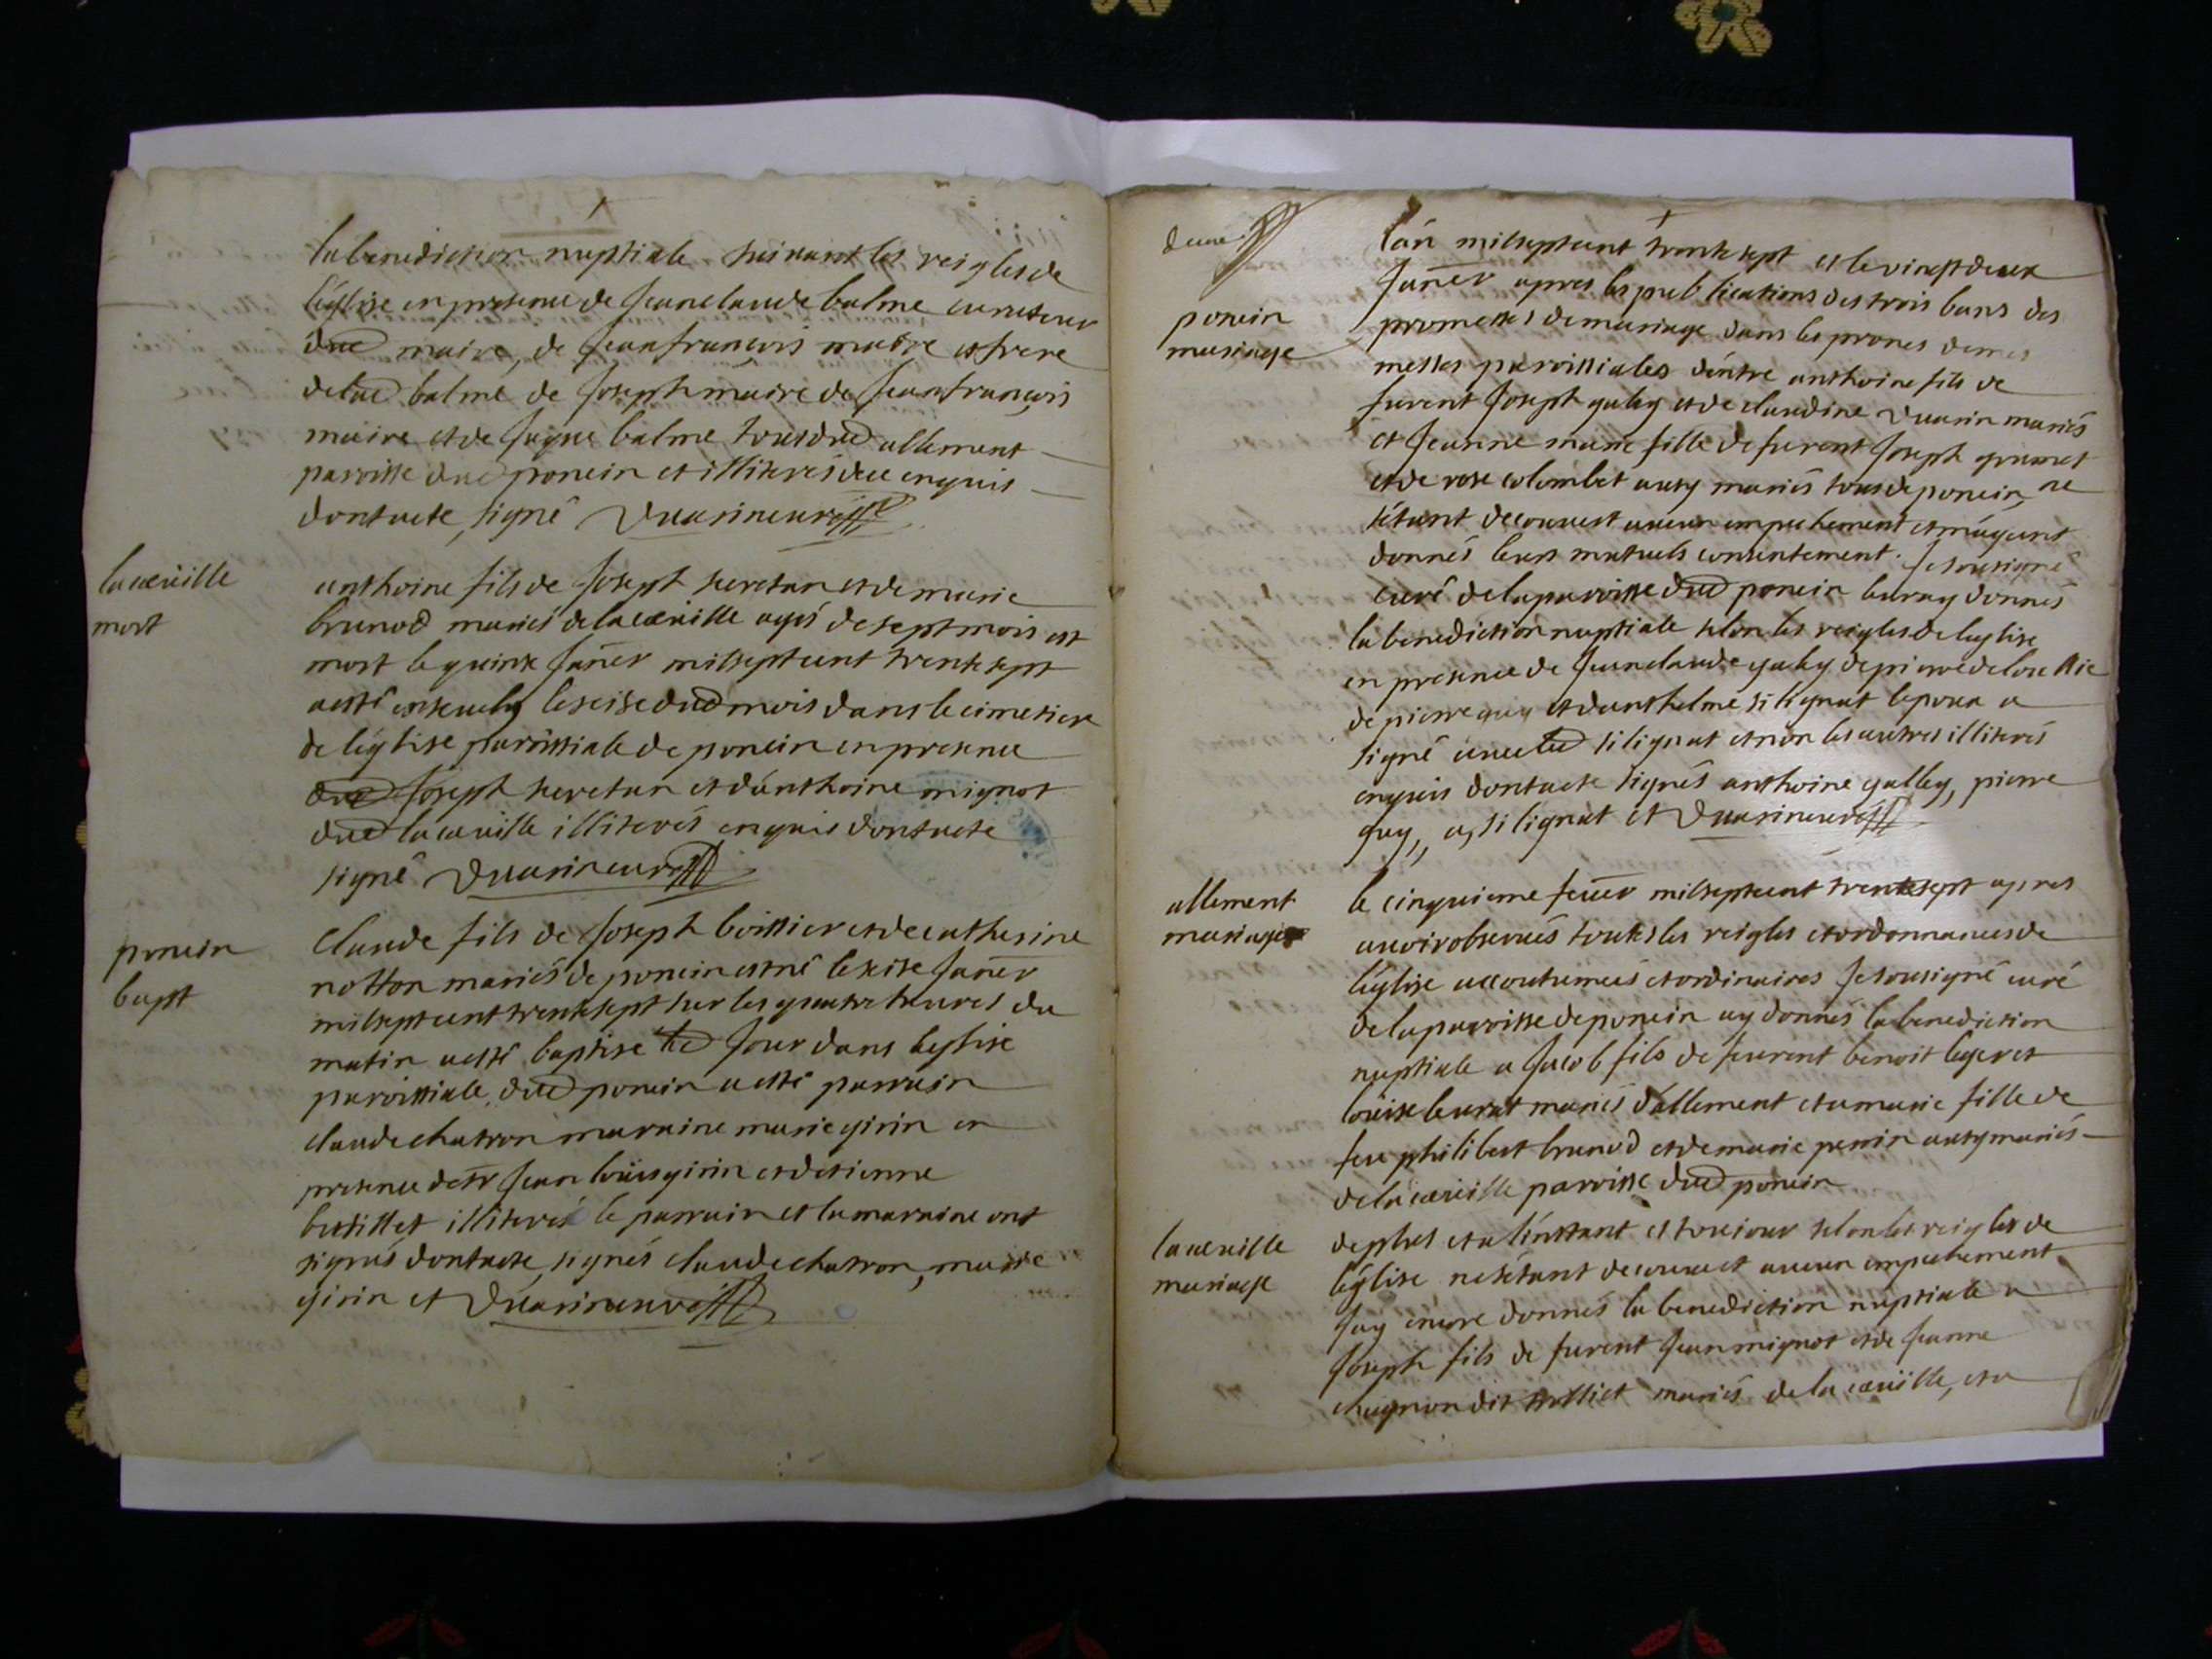 la benediction nuptiale suivant les reigles de
l'église en presence de Jeanclaude balme curateur
dud maire, de Jeanfrancois maire et frere
de lad balme de Joseph maire de Jeanfrancois
maire et de Jaque balme tous dud allement
paroisse dud poncin et illiterés deue enquis
dont acte, signé Duarin curé
la cœuille
mort
anthoine fils de Joseph heretan et de marie
brunod mariés de la cœuille agés de sept mois est
mort le quinze Janer mil sept cent trente sept
a esté ensevely le seise dud mois dans le cimetiere
de l'église paroissiale de poncin en presence
dud Joseph heretan et d'anthoine mignot
dud la cœuille illiterés enquis dont acte
signé Duarin curé
poncin
bapt
Claude fils de Joseph boissier et de catherine
notton mariés de poncin est né le seise Janer
mil sept cent trente sept sur les quatre heures du
matin a esté baptise led Jour dans leglise
paroissiale dud poncin a esté parrain
claude chatron maraine marie girin en
presence de sr Jean loüis girin et detienne
illiterés le parrain et la maraine ont
signés dont acte, signés claude chatron, marie
girin et Duarin curé
deux
poncin
mariage
lan mil sept cent trente sept et le vingt deux
Janer apres les publications des trois bans des
promesses de mariage dans les prones de mes
messes paroissiales d'entre anthoine fils de
furent Joseph galey et de claudine Duarin mariés
et Jeanne marie fille de furent Joseph grumet
et de rose colombet aussy mariés tous de poncin, ne
s'etant decouvert aucun empechement et m'ayant
donnés leurs mutuels consentement. Je sousigné
curé de la paroisse dud poncin leur ay donnés
la benediction nuptiale selon les reigles de leglise
en presence de Jeanclaude galey de pierre
de pierre guy et d'anthelme silignat lepoux a
signé avec led silignat et non les autres illiterés
enquis dont acte signés anthoine galley, pierre
guy, a, silignat et Duarin curé
allement
mariage
le cinquieme fever mil sept cent trente sept apres
avoir observés toutes les reigles et ordonnances de
l'église accoutumeés et ordinaires Je sousigné curé
de la paroisse de poncin ay donnés la benediction
nuptiale a Jacob fils de feurent benoit leger et
loüise leurat mariés d'allement et a marie fille de
feu philibert brunod et de marie perrin aussy mariés
de la cœuille paroisse dud poncin
la cœuille
mariage
de plus et a l'instant et toujour selon les reigles de
l'église ne s'étant decouvert aucun empechement
Jay encore donnés la benediction nuptiale a
Joseph fils de furent Jean mignot et de Jeanne
chagnon dit trolliet mariés de la cœuille, et a